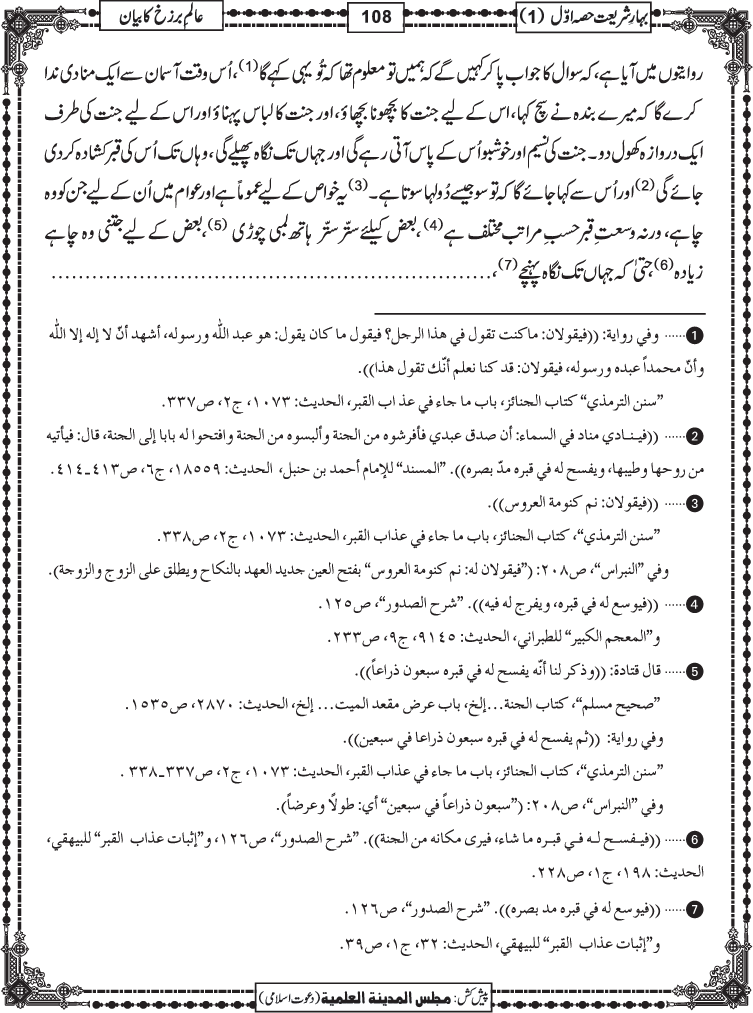 بہارِ شریعت حصہ اوّل (1)
108
عالمِ برزخ کا بیان
روایتوں میں آیا ہے، کہ سوال کا جواب پا کر کہیں گے کہ ہمیں تو معلوم تھا کہ تُو یہی کہے گا (1)، اُس وقت آسمان سے ایک منادی ندا
کرے گا کہ میرے بندہ نے سچ کہا، اس کے لیے جنت کا بچھونا بچھاؤ، اور جنت کا لباس پہناؤ اور اس کے لیے جنت کی طرف
ایک دروازہ کھول دو۔ جنت کی نسیم اور خوشبو اُس کے پاس آتی رہے گی اور جہاں تک نگاہ پھیلے گی، وہاں تک اُس کی قبر کشادہ کر دی
جائے گی (2) اور اُس سے کہا جائے گا کہ تو سو جیسے دُولہا سوتا ہے۔ (3) یہ خواص کے لیے عموماً ہے اور عوام میں اُن کے لیے جن کو وہ
چاہے، ورنہ وسعتِ قبر حسبِ مراتب مختلف ہے (4)، بعض کیلئے ستّر ستّر ہاتھ لمبی چوڑی (5)، بعض کے لیے جتنی وہ چاہے
زیادہ (6)، حتیٰ کہ جہاں تک نگاہ پہنچے (7)، ................................................................
1 ...... وفي رواية: ((فيقولان: ماكنت تقول في هذا الرجل؟ فيقول ما كان يقول: هو عبد الله ورسوله، أشهد أنّ لا إله إلا الله
وأنّ محمداً عبده ورسوله، فيقولان: قد كنا نعلم أنّك تقول هذا)).
”سنن الترمذي“ كتاب الجنائز، باب ما جاء في عذاب القبر، الحديث: ١٠٧٣، ج٢، ص٣٣٧.
2 ...... ((فيـنـادي مناد في السماء: أن صدق عبدي فأفرشوه من الجنة وألبسوه من الجنة وافتحوا له بابا إلى الجنة، قال: فيأتيه
من روحها وطيبها، ويفسح له في قبره مدّ بصره)). ”المسند“ للإمام أحمد بن حنبل، الحديث: ١٨٥٥٩، ج٦، ص٤١٣ـ٤١٤.
3 ...... ((فيقولان: نم كنومة العروس)).
”سنن الترمذي“، كتاب الجنائز، باب ما جاء في عذاب القبر، الحديث: ١٠٧٣، ج٢، ص٣٣٨.
وفي ”النبراس“، ص٢٠٨: (”فيقولان له: نم كنومة العروس“ بفتح العين جديد العهد بالنكاح ويطلق على الزوج والزوجة).
4 ...... ((فيوسع له في قبره، ويفرج له فيه)). ”شرح الصدور“، ص١٢٥.
و”المعجم الكبير“ للطبراني، الحديث: ٩١٤٥، ج٩، ص٢٣٣.
5 ...... قال قتادة: ((وذكر لنا أنّه يفسح له في قبره سبعون ذراعاً)).
”صحيح مسلم“، كتاب الجنة...إلخ، باب عرض مقعد الميت... إلخ، الحديث: ٢٨٧٠، ص١٥٣٥.
وفي رواية: ((ثم يفسح له في قبره سبعون ذراعا في سبعين)).
”سنن الترمذي“، كتاب الجنائز، باب ما جاء في عذاب القبر، الحديث: ١٠٧٣، ج٢، ص٣٣٧ـ٣٣٨ .
وفي ”النبراس“، ص٢٠٨: (”سبعون ذراعاً في سبعين“ أي: طولًا وعرضاً).
6 ...... ((فيـفسـح لـه فـي قبـره ما شاء، فيرى مكانه من الجنة)). ”شرح الصدور“، ص١٢٦، و”إثبات عذاب القبر“ للبيهقي،
الحديث: ١٩٨، ج١، ص٢٢٨.
7 ...... ((فيوسع له في قبره مد بصره)). ”شرح الصدور“، ص١٢٦.
و”إثبات عذاب القبر“ للبيهقي، الحديث: ٣٢، ج١، ص٣٩.
پیش کش: مجلس المدينة العلمية (دعوتِ اسلامی)